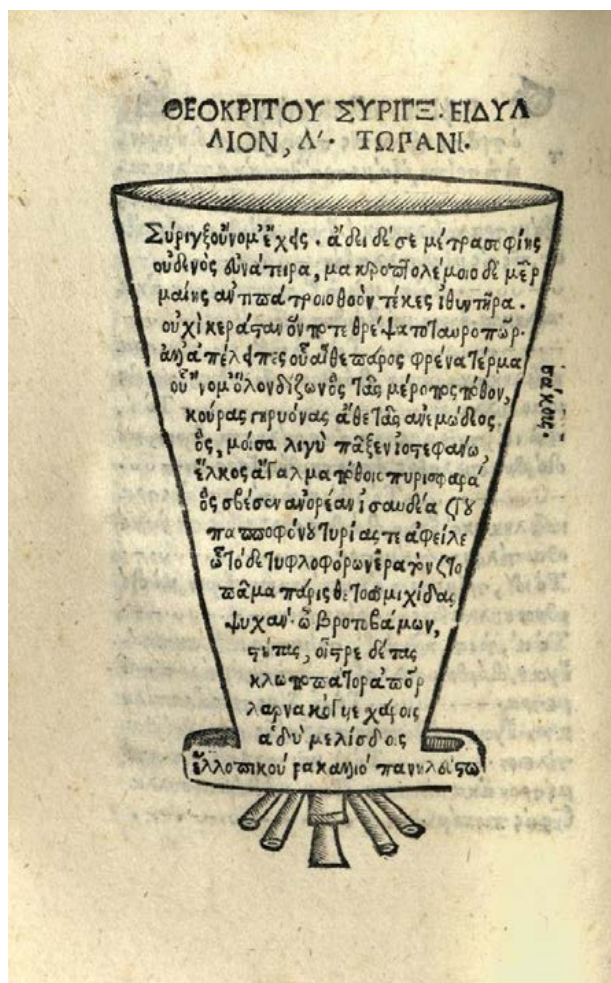 ΘΕΟΚΡΙΤΟΥ ΣΥΡΙΓΞ· ΕΙΔΥΛ
ΛΙΟΝ, Λ΄· ΤΩΡΑΝΙ·
Σύριγξ οὔνομ' ἔχεις· ἄδει δέ σε μέτρα σοφίης
οὐδενὸς εὐνάτειρα, μακροπτολέμοιο δὲ μῆρ
μαίης ἀντιπάτροιο θοὸν τέκες ἰθυντῆρα.
οὐχὶ κεράσταν ὅν ποτε θρέψατο ταυροπῶρ·
ἀλλ' ἁ πέλειπες οὗ αἶθε πάρος φρένα τέρμα
οὔνομ' ὅλον δίζωνος τᾶς μέροπος πόθον,
κούρας γηρυόνας ἄθε τᾶς ἀνεμώδεος
ὅς, μοίσα λιγὺ πᾶξεν ἰοστεφάνω,
ἕλκος ἄγαλμα πόθοιο πυρισφαρά
ὃς σβέσεν ἀνορέαν ἰσαυδέα
παπποφόνου τυρίας τε ἀφείλε
ᾧ τόδε τυφλοφόρων ἐρατὸν
πᾶμα πάρις θέτο σιμιχίδας
ψυχάν· ὦ βροτοβάμων,
στήτας, οἶστρε
κλωποπάτορ ἀπᾶορ
λαρνακόγυιε χάροις
ἁδὺ μελίσδοις
ἔλλοπι κούρα καλλιόπα νηλεύστῳ